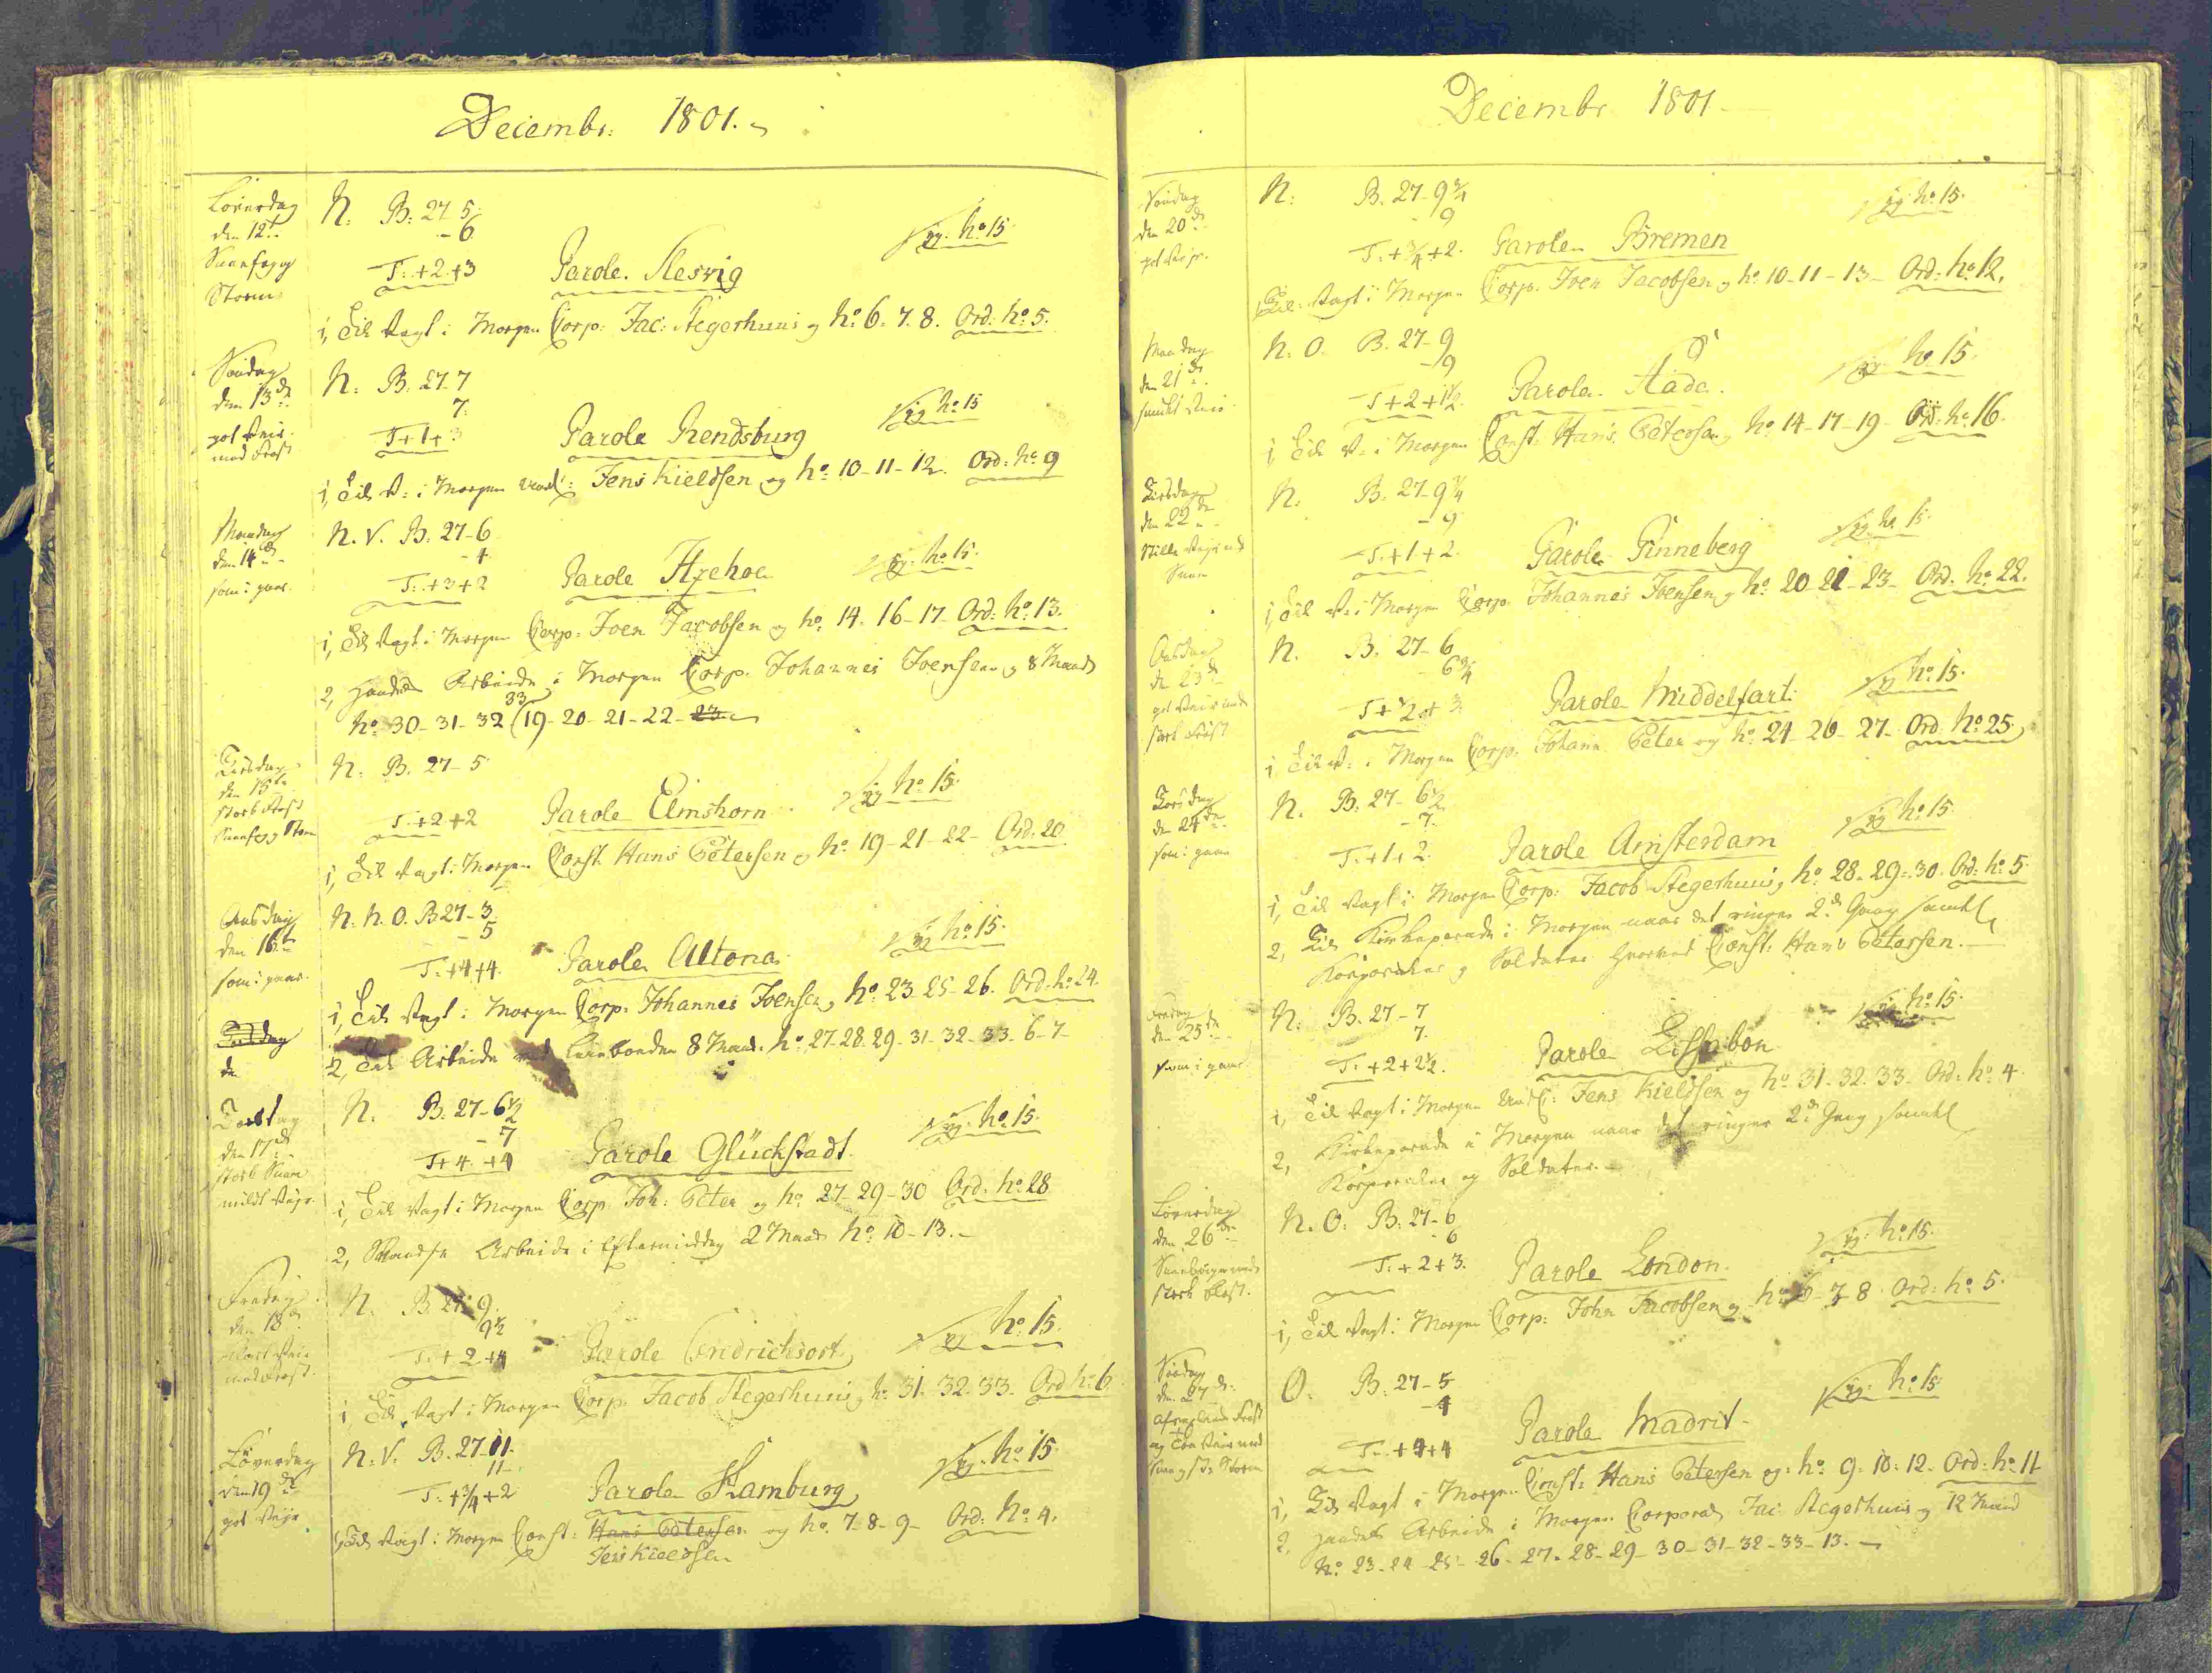 Decembr: 1801.
Löverdag
den 12te
Sneefog og
Storm
N: B: 27-5
-6
T: +2+3
Parole. Slesvig
No 15.
1, Til Vagt i Morgen Corp: Jac: Stegerhuus og No 6. 7. 8. Ord: No 5.
Söndag
den 13de
got Veir
med Frost
N: B: 27-7
7.
T+1+3
Parole Rendsburg
No 15
1, Til V: i Morgen Jens Kieldsen og No 10-11-12. Ord: No 9
Mandag
den 14de
som i gaar.
N. V. B: 27-6
-4
T: +3+2
Parole Itzehoe
No 15.
1, Til Vagt i Morgen Corp: Joen Jacobsen og No 14. 16-17- Ord: No 13.
2, Arbeide i Morgen Corp. Johannes Joensen og 8 Mand
33
No 30-31-32 (19-20-21-22-23
Tirsdag
den 15te
stærk Frost
Sneefog og Storm
N: B. 27-5
T. +2+2
Parole Elmshorn
No 15.
1, Til Vagt i Morgen Const. Hans Petersen og No 19-21-22- Ord. 20
Onsdag
den 16te
som i gaar.
N. N. O. B 27-3.
-5
T. +4+4.
Parole Altona
No 15.
1, Til Vagt i Morgen Corp: Johannes Joensen, No 23-25-26. Ord. No 24.
2, Til Arbeide ved 8 Mand. No 27-28-29-31-32-33-6-7-
den
Torsdag
den 17de
stærk Snee
mildt Vejr.
N. B: 27-6½
-7
T+4. +4
Parole Glückstadt
No 15.
1, Til Vagt i Morgen Corp. Joh: Peter og No 27-29-30 Ord: No 28
2, Arbeide i Eftermiddag 2 Mand No 10-13.-
Fredag
den 18de
med Frost.
N. B 27-9.
9½
T. +2+4
Parole Fridrichsort
No 15.
1, Til Vagt i Morgen Corp. Jacob Stegerhuus, No 31. 32. 33. Ord No 6
Löverdag
den 19de
got Vejr
N. V. B. 27-11.
11-
T. +¾+2
Parole Hamburg
No 15.
1, Til Vagt i Morgen Const: Hans Petersen og No. 7-8-9- Ord: No 4.
Jens Kieldsen
Decembr 1801-
Söndag
den 20de
got Vejr.
N: B. 27-9¾
9
T. +¾+2.
Parole Bremen
No 15.
1, Til Vagt i Morgen Corp. Joen Jacobsen, No 10-11-13- Ord: No 12.
Mandag
den 21de
smukt Veir.
N: O. B. 27-9
-9
T+2+1½.
Parole Stade.
No 15.
1, Til V: i Morgen Const: Hans Petersen, No 14-17-19- Ord: No 16.
Tirsdag
den 22de
Stille Vejr med
Snee
N: B. 27-9¼
-9
T. +1+2.
Parole Pinneberg
No 15.
1, Til V: i Morgen Corp. Johannes Joensen og No 20-21-23- Ord. No 22.
Onsdag
den 23de
got Veir med
stærk Frost
N. B. 27-6
6¾
T+½+3.
Parole Middelfart.
No 15.
1, Til V: i Morgen Corp: Johann Peter og No 24-26-27- Ord No 25
Torsdag
den 24de
som i gaar
N. B: 27-6½
-7.
T. +1+2.
Parole Amsterdam
No 15.
1, Til Vagt i Morgen Corp: Jacob Stegerhuus, No 28-29-30. Ord: No 5.
2, Til Kirkeparade i Morgen naar det ringer 2de Gang samtl.
Korporaler og Soldater Const: Hans Petersen.-
Fredag
den 25de
som i gaar
N: B. 27-7
7.
T. +2+2½.
Parole Lissabon
No 15.
1, Til Vagt i Morgen Jens Kieldsen og No 31. 32. 33. Ord: No 4.
2, Kirkeparade i Morgen naar det ringer 2de Gang samtl.
Korporaler og Soldater.-
Löverdag
den 26de
stærk Blæst.
N. O: B: 27-6
-6
T. +2+3.
Parole London.
No 15.
1, Til Vagt i Morgen Corp: John Jacobsen og No 6-7-8. Ord: No 5.
Söndag
den 27de
O. B: 27-5
-4
T. +4+4
Parole Madrit-
No 15
1, Til Vagt i Morgen Const: Hans Petersen og: No 9-10-12- Ord: No 11
2, Arbeide i Morgen Corporal Jac: Stegerhuus og 12 Mand
No 23-24-25-26-27-28-29-30-31-32-33-13.-